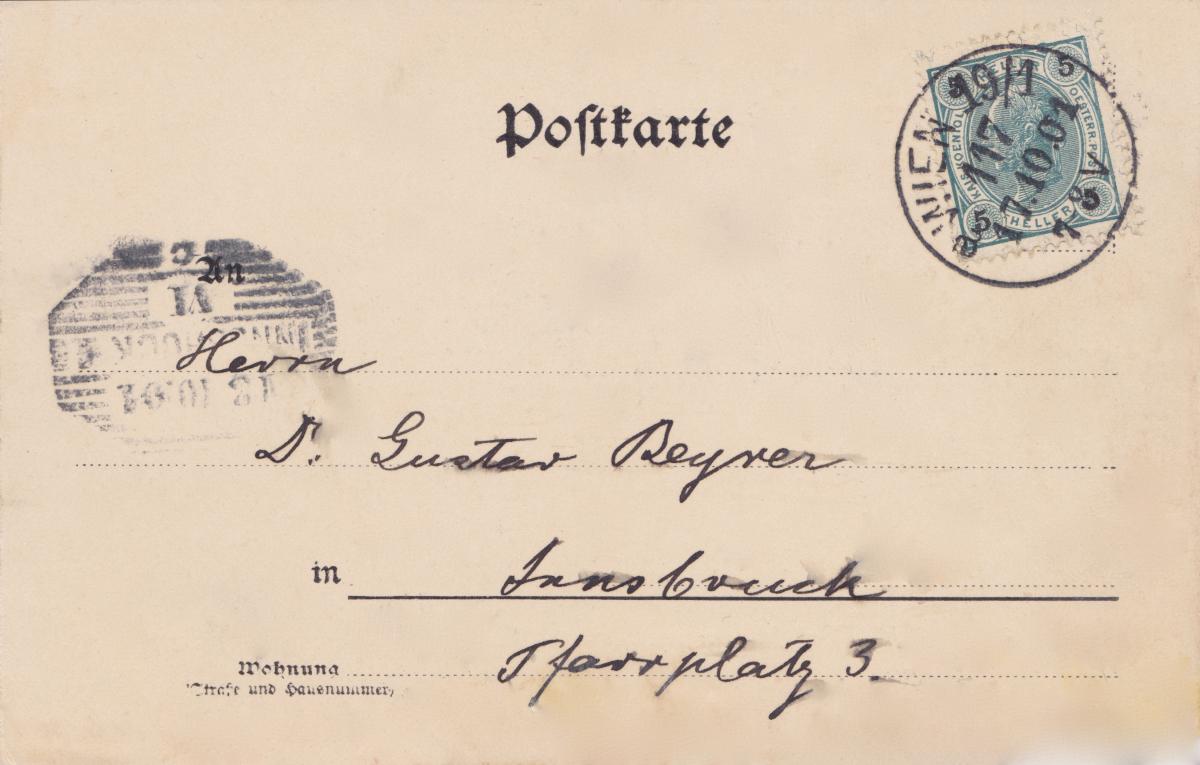 Postkarte
19/1
WIEN
117
17.10.01
5
5
5
HELLER
An
VI
INNSBRUCK
18.10.01
Herrn
Dr. Gustav Beyrer
in Innsbruck
Pfarrplatz 3.
Wohnung
(Straße und Hausnummer)